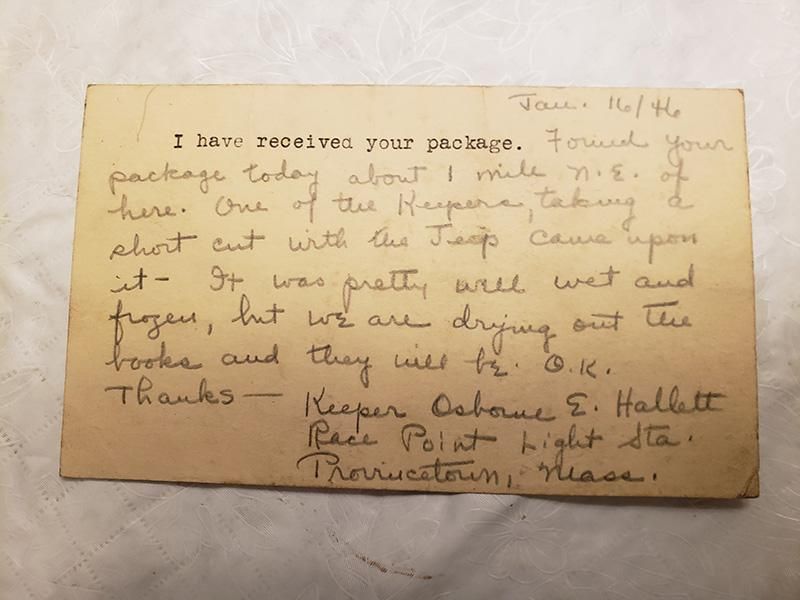 Jan. 16/46
I have received your package. Found your
package today about 1 mile N.E. of
here. One of the Keepers, taking a
short cut with the Jeep came upon
it - It was pretty well wet and
frozen, but we are drying out the
books and they will be O.K.
Thanks — Keeper Osborne E. Hallett
Race Point Light Sta.
Provincetown, Mass.